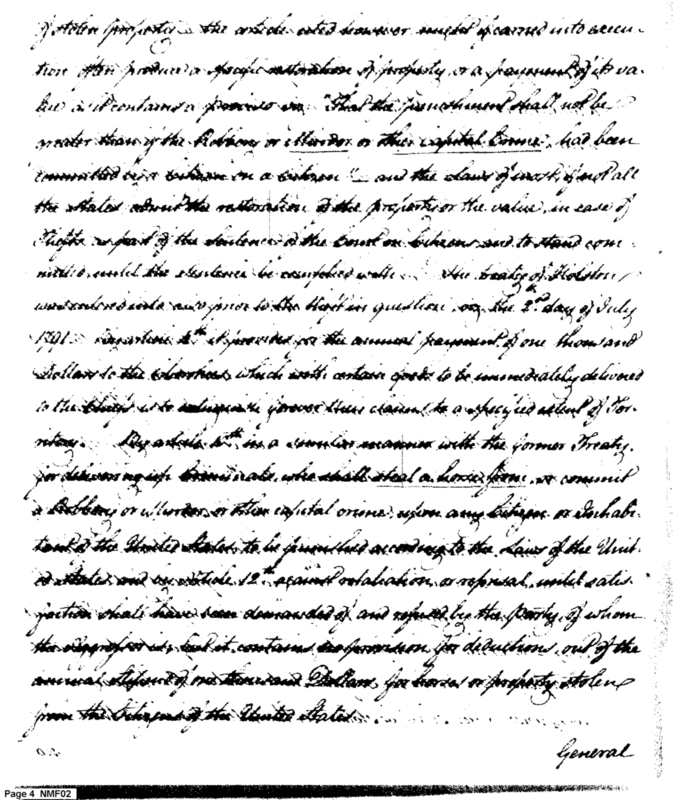 of stolen property — the article cited however might if carried into execu-
tion often produce a specific restoration of property, or a payment of its va-
lue as it contains a proviso "That the punishment shall not be
greater than if the Robbery or Murder or other capital Crime, had been
committed by a citizen on a citizen" — and the Laws of most, if not all
the States admit the restoration of the property or the value, in case of
Thefts as part of the sentence of the Court on Citizens and to stand com-
mitted, until the sentence be complied with. The treaty of Holston
was entered into also prior to the theft in question on the 2d day of July
1791. article 4th it provides for the annual payment of one thousand
Dollars to the Cherokees, which with certain goods to be immediately delivered
to the Chiefs is to relinquish forever their claims to a specified extent of Ter-
ritory. By article 10th in a similar manner with the former Treaty,
for delivering up Criminals, who shall steal a horse from, or commit
a Robbery or Murder, or other capital crime upon any Citizen or Inhabi-
tant of the United States, to be punished according to the Laws of the Unit-
ed States and in article 12th against retaliation or reprisal, until satis-
faction shall have been demanded of, and refused by the Party, of whom
the aggressor is, but it contains no provision for deductions, out of the
annual stipend of one thousand Dollars, for horses or property stolen
from the Citizens of the United States.
General
Page 4 NMF02